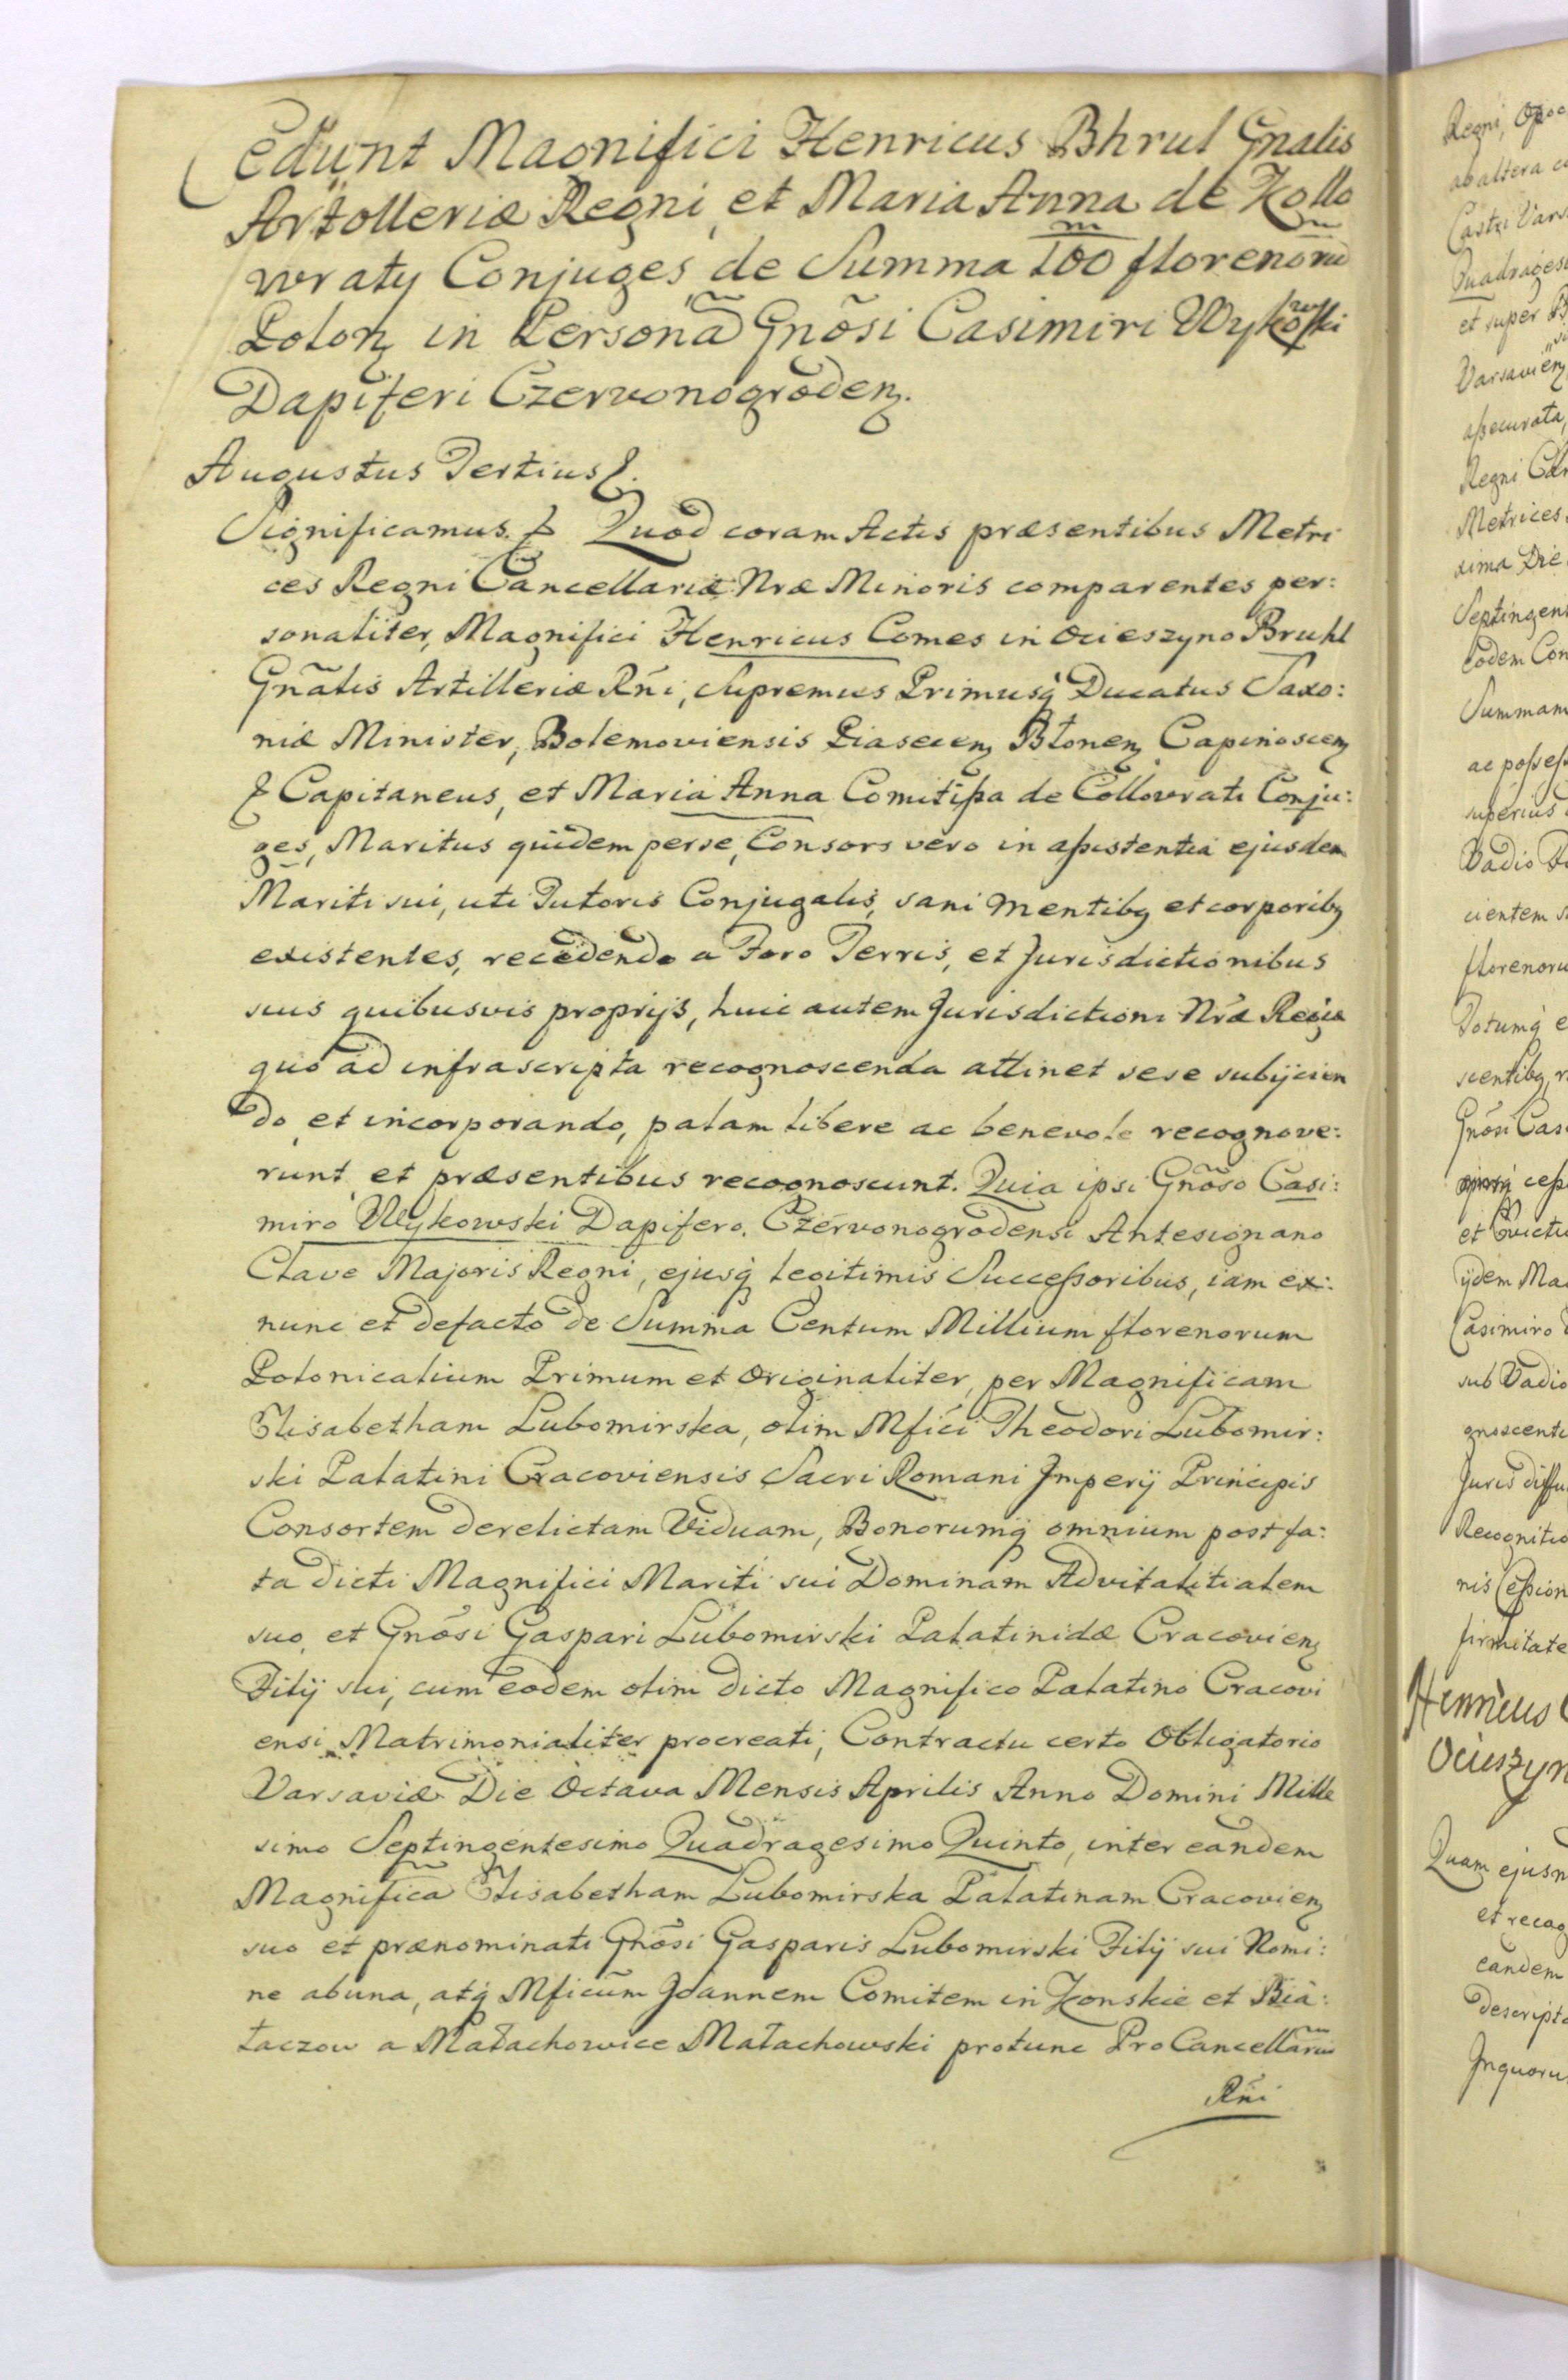 Cedunt Magnifici Henricus Bhrul Gnalis
Artolleriæ Regni, et Maria Anna de Kollo
wraty Conjuges de Summa 100 m florenorũ
Polonz in Personã Gnõsi Casimiri Wykowski
Dapiferi Czerwonogrodenz.
Augustus Tertius &.
Significamus & Quod coram Actis præsentibus Metri
ces Regni Cancellariæ Nræ Minoris comparentes per:
sonaliter, Magnifici Henricus Comes in Ocieszyno Bruhl
Gnãlis Artilleriæ Rñi, Supremus Primusq́ Ducatus Saxo:
niæ Minister, Bolemoviensis Piasecenz Błonenz Capinoscenz
& Capitaneus, et Maria Anna Comitißa de Collowrati Conju:
ges, Maritus quidem perse, Consors vero in aßistentia ejusdem
Mariti sui, uti Tutoris Conjugalis, sani mentibq et corporibq
existentes, recedendo a Foro Terris, et Jurisdictionibus
suis quibusvis proprijs, huic autem Jurisdictioni Nræ Regiæ
quo ad infrascripta recognoscenda attinet sese subijcien
do, et incorporando, palam libere ac benevole recognove:
runt, et præsentibus recognoscunt. Quia ipsi Gnõso Casi:
miro Wykowski Dapifero. Czerwonogrodensi Antesignano
Clavæ Majoris Regni, ejusq́ legitimis Succeßoribus, iam ex:
nunc et defacto de Summa Centum Millium florenorum
Polonicalium Primum et Originaliter, per Magnificam
Elisabetham Lubomirska, olim Mfici Theodori Lubomir:
ski Palatini Cracoviensis Sacri Romani Imperij Principis
Consortem derelictam Viduam, Bonorumq́ omnium post fa:
ta dicti Magnifici Mariti sui Dominam Advitalitialem
suo, et Gnõsi Gaspari Lubomirski Palatinidæ Cracovienz
Filij sui, cum eodem olim dicto Magnifico Palatino Cracovi
ensi Matrimonialiter procreati, Contractu certo Obligatorio
Varsaviæ Die Octava Mensis Aprilis Anno Domini Mille
simo Septingentesimo Quadragesimo Quinto, inter eandem
Magnificã Elisabetham Lubomirska Palatinam Cracovienz
suo et prænominati Gnõsi Gasparis Lubomirski Filij sui Nomi:
ne abuna, atq́ Mficum Joannem Comitem in Konskie et Bia:
łaczow a Małachowice Małachowski protunc ProCancellariũ
Rñi
Regni,
ab altera
Quadrages
et super
Varsavienz
aßecurata,
Regni
Metrices
xima Die
Septingen
eodem Con
Summam
ac poßeß
superius
Vadio
cientem
florenoru
Totumq́ e
scentibq
Gnõsi Cas
et Evicti
ijdem Ma
Casimiro
sub Vadio
gnoscenti
Juris
Recognitio
nis Ceßion
firmitate
Henricus
Ocieszyn
Quam ejusm
et recog
eandem
descripta
Inquoru